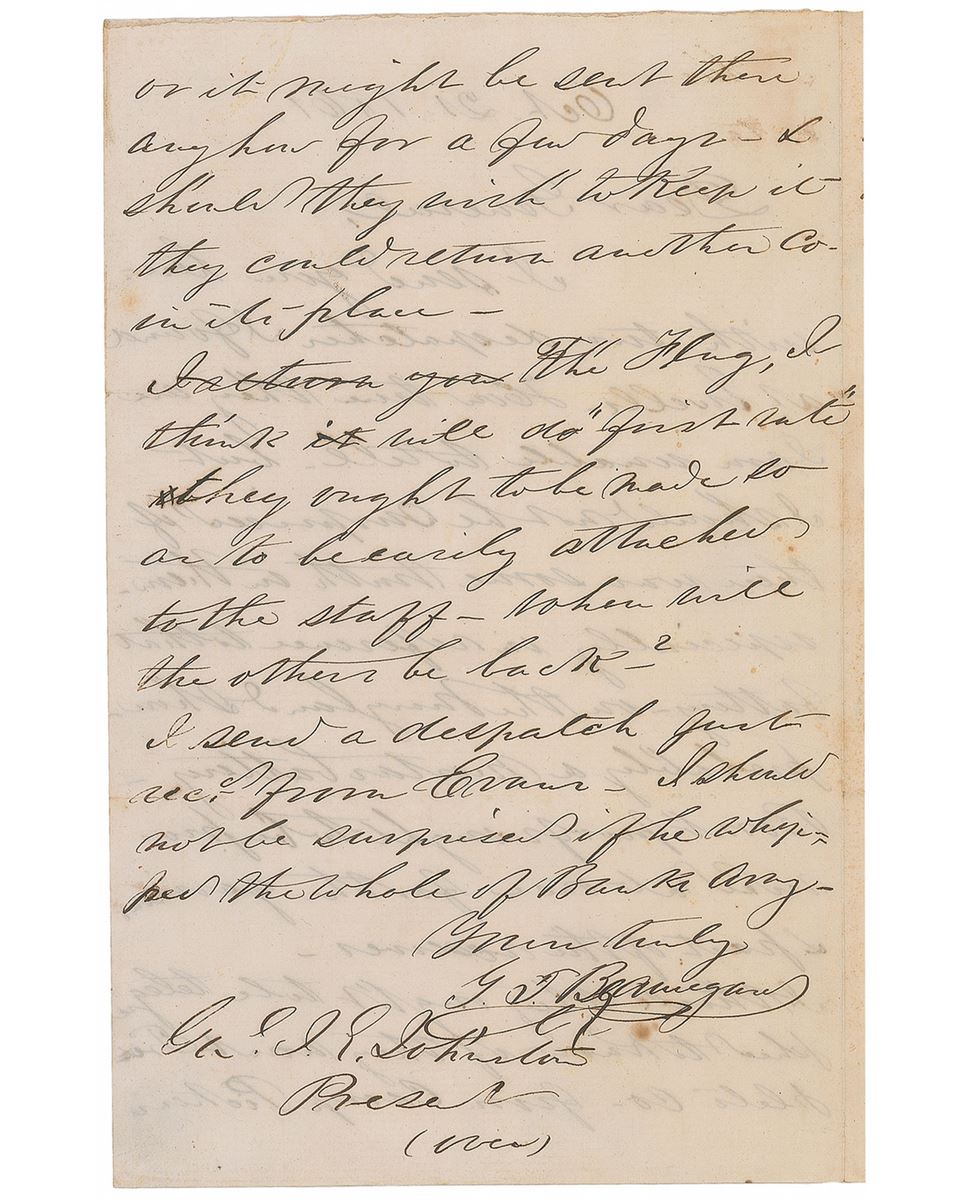 or it might be sent there
anyhow for a few days – &
should they wish to keep it
they could return another Co-
in its place –
I return you The Flag, I
think it will do "first rate"
they ought to be made so
as to be easily attached
to the staff – when will
the others be back – ?
I send a despatch just
recd. from Evans – I should
not be surprised if he whip-
ped the whole of Banks Army –
Yours truly
G. T. Beauregard
Gnl. J. E. Johnston
Present
(over)